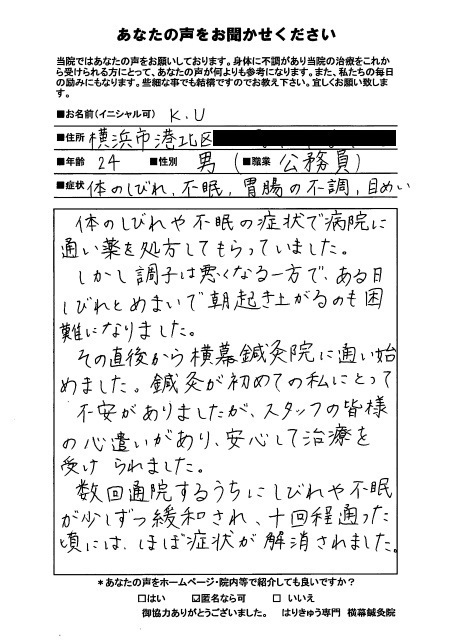 あなたの声をお聞かせください
当院ではあなたの声をお願いしております。身体に不調があり当院の治療をこれか
ら受けられる方にとって、あなたの声が何よりも参考になります。また、私たちの毎日
の励みにもなります。些細な事でも結構ですのでお教え下さい。宜しくお願い致しま
す。
■お名前(イニシャル可) K.U
■住所 横浜市港北区
■年齢 24 ■性別 男 (■職業 公務員)
■症状 体のしびれ、不眠、胃腸の不調、目めい
体のしびれや不眠の症状で病院に
通い薬を処方してもらっていました。
しかし調子は悪くなる一方で、ある日
しびれとめまいで朝起き上がるのも困
難になりました。
その直後から横幕鍼灸院に通い始
めました。鍼灸が初めての私にとって
不安がありましたが、スタッフの皆様
の心遣いがあり、安心して治療を
受けられました。
数回通院するうちにしびれや不眠
が少しずつ緩和され、十回程通った
頃には、ほぼ症状が解消されました。
*あなたの声をホームページ・院内等で紹介しても良いですか?
□はい ☑匿名なら可 □いいえ
御協力ありがとうございました。 はりきゅう専門 横幕鍼灸院